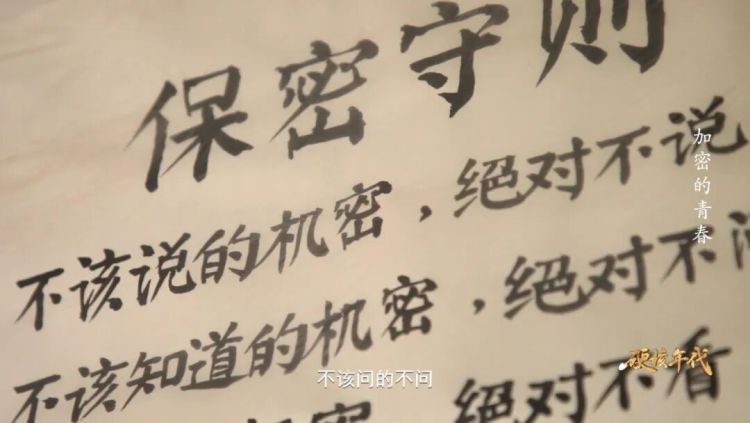 保密守则
不该说的机密，绝对不说
不该知道的机密，绝对不问
密，绝对不看
不该问的不问
加密的青春
硬核年代